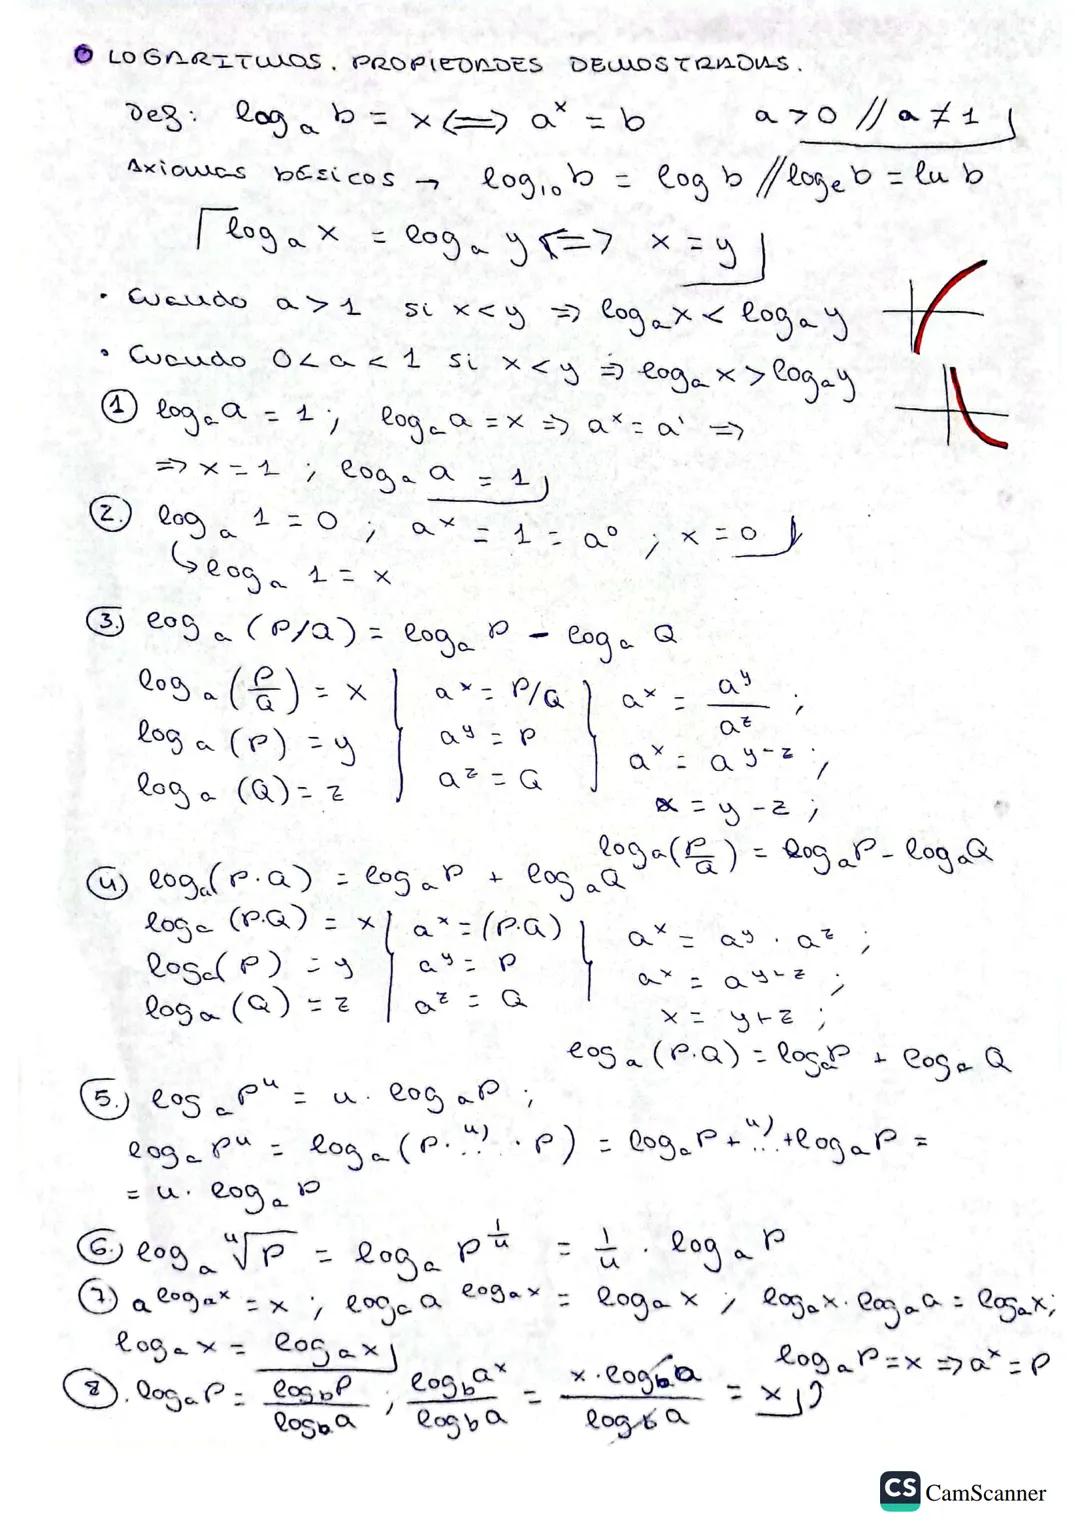 LOGARITMOS. PROPIEDADES DEMOSTRADAS.
Def: logₐ b = x ⟺ aˣ = b    a > 0 // a ≠ 1
Axiomas básicos → log₁₀ b = log b // logₑ b = ln b
logₐ x = logₐ y ⟺ x = y
· Cuando a > 1 si x < y ⇒ logₐ x < logₐ y
· Cuando 0 < a < 1 si x < y ⇒ logₐ x > logₐ y
① logₐ a = 1 ; logₐ a = x ⇒ aˣ = a¹ ⇒
⇒ x = 1 ; logₐ a = 1
②. logₐ 1 = 0 ; aˣ = 1 = a⁰ ; x = 0
↳ logₐ 1 = x
③. logₐ (P/Q) = logₐ P - logₐ Q
logₐ (P/Q) = x    aˣ = P/Q    aˣ = a^y / a^z ;
logₐ (P) = y    a^y = P    aˣ = a^(y-z) ;
logₐ (Q) = z    a^z = Q    x = y - z ;
logₐ (P/Q) = logₐ P - logₐ Q
④ logₐ (P·Q) = logₐ P + logₐ Q
logₐ (P·Q) = x    aˣ = (P·Q)    aˣ = a^y · a^z ;
logₐ (P) = y    a^y = P    aˣ = a^(y+z) ;
logₐ (Q) = z    a^z = Q    x = y + z ;
logₐ (P·Q) = logₐ P + logₐ Q
⑤. logₐ Pⁿ = n · logₐ P ;
logₐ Pⁿ = logₐ (P · ..ⁿ⁾.. · P) = logₐ P + ..ⁿ⁾.. + logₐ P =
= n · logₐ P
⑥. logₐ ⁿ√P = logₐ P^(1/n) = 1/n · logₐ P
⑦ a^(logₐ x) = x ; logₐ a^(logₐ x) = logₐ x ; logₐ x · logₐ a = logₐ x ;
logₐ x = logₐ x
logₐ P = x ⇒ aˣ = P
⑧. logₐ P = log_b P / log_b a ; log_b aˣ / log_b a = x · log_b a / log_b a = x
CS CamScanner